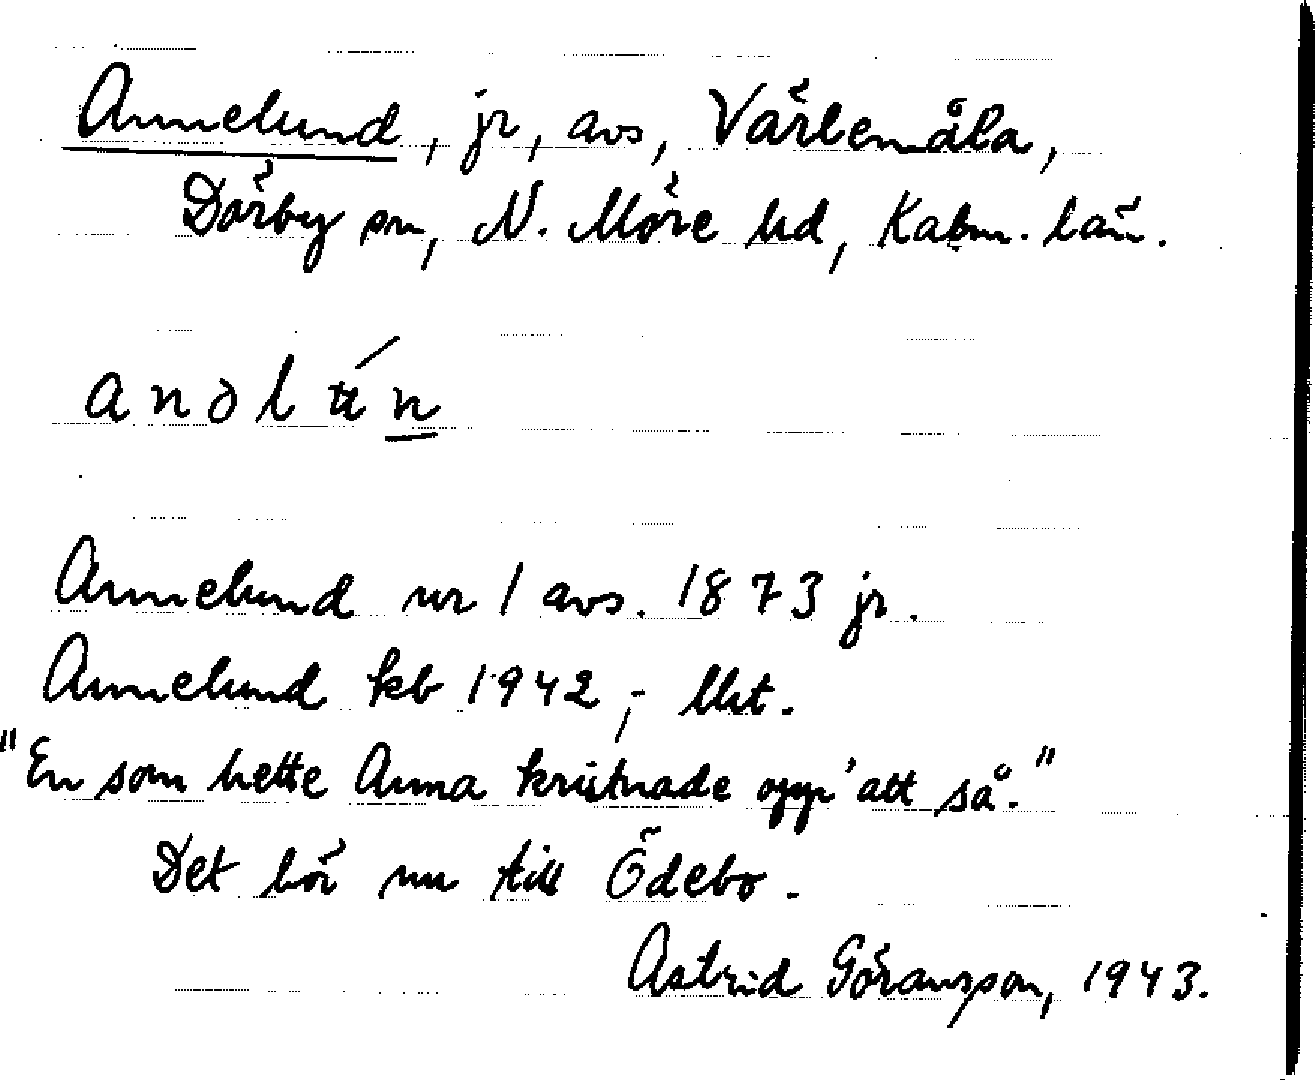 Annelund, jr, avs, Värlemåla,
Dörby sn, N. Möre hd, Kalm. län.
Annelund ur 1 avs. 1873 jr.
Annelund kb 1942, - Uut.
"En som hette Anna kristnade opp' att så."
Det hör nu till Ödebo.
Astrid Göransson, 1943.